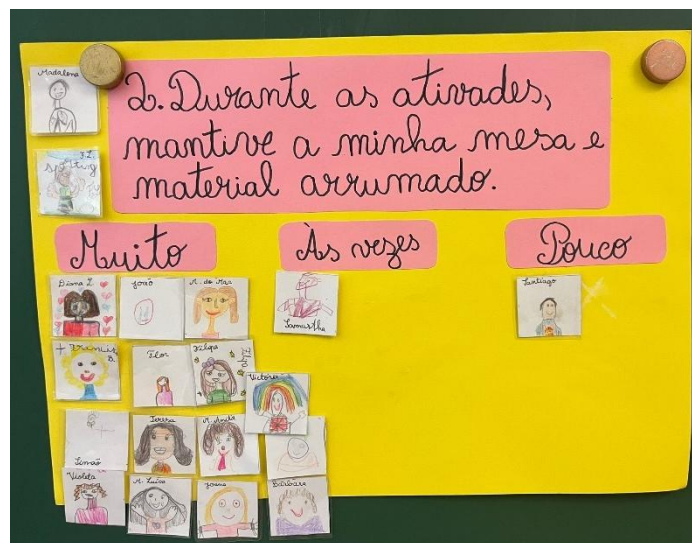 Madalena
J.L.
Sporting
2. Durante as ativades,
mantive a minha mesa e
material arrumado.
Muito
Às vezes
Pouco
Diana L.
João
M. do Mar
Samantha
Santiago
Francis
B.
Flor
Filipa
Victória
Simão
Teresa
M. André
Violeta
M. Luísa
Joana
Bárbara